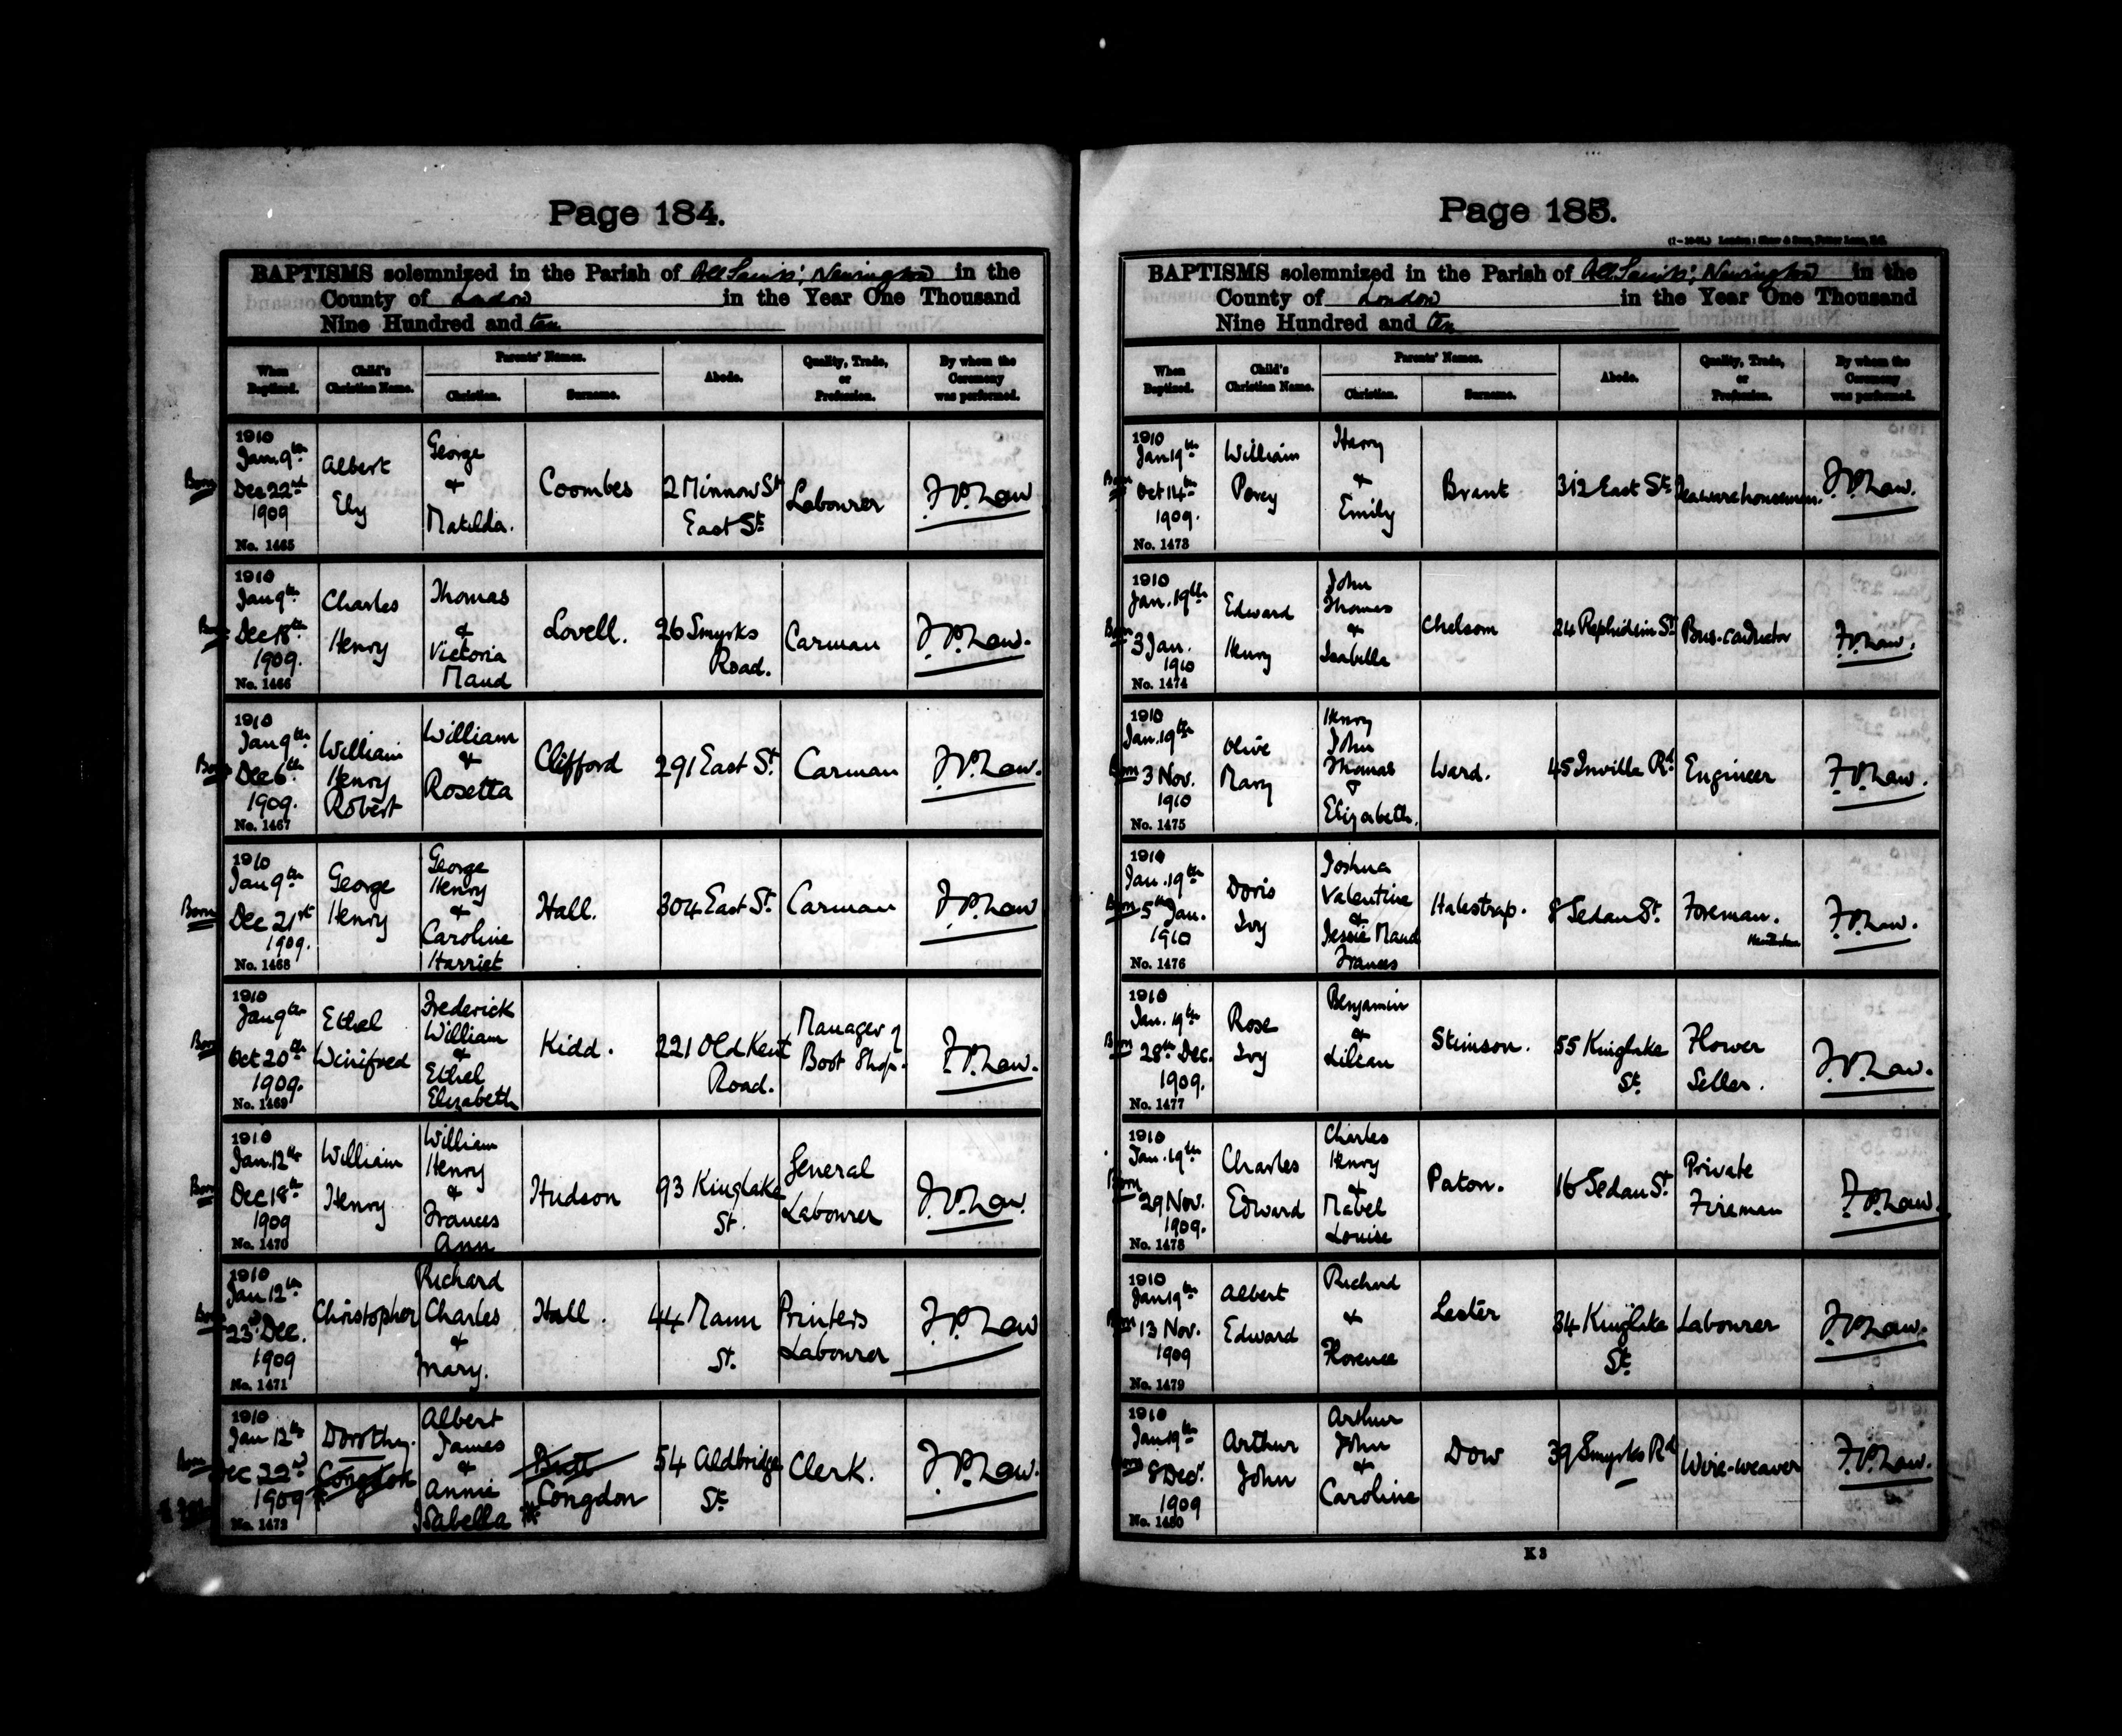 Page 184.
BAPTISMS solemnized in the Parish of All Saints', Newington in the
County of London in the Year One Thousand
Nine Hundred and ten
When Baptized. Child's Christian Name. Parents' Names. Christian. Surname. Abode. Quality, Trade, or Profession. By whom the Ceremony was performed.
1910 Jan. 9th Born Dec 22nd 1909 No. 1465 Albert Ely George & Matilda. Coombes 2 Minnow St East St Labourer F.P. Law
1910 Jan 9th Born Dec 18th 1909. No. 1466 Charles Henry Thomas & Victoria Maud Lovell. 26 Smyrks Road. Carman F.P. Law.
1910 Jan 9th Born Dec 6th 1909. No. 1467 William Henry Robert William & Rosetta Clifford 291 East St. Carman F.P. Law.
1910 Jan 9th Born Dec 21st 1909. No. 1468 George Henry George Henry & Caroline Harriet Hall. 304 East St. Carman F.P. Law
1910 Jan 9th Born Oct 20th 1909. No. 1469 Ethel Winifred Frederick William & Ethel Elizabeth Kidd. 221 Old Kent Road. Manager of Boot Shop. F.P. Law.
1910 Jan. 12th Born Dec 18th 1909 No. 1470 William Henry William Henry & Frances Ann Hudson 93 Kinglake St. General Labourer F.P. Law.
1910 Jan 12th Born 23rd Dec. 1909 No. 1471 Christopher Richard Charles & Mary. Hall. 44 Mann St. Printers Labourer F.P. Law
1910 Jan 12th Born Dec 22nd 1909 No. 1472 Dorothy. Congdon Albert James & Annie Isabella Butt Congdon 54 Aldbridge St. Clerk. F.P. Law.
Page 185.
BAPTISMS solemnized in the Parish of All Saints', Newington in the
County of London in the Year One Thousand
Nine Hundred and ten
When Baptized. Child's Christian Name. Parents' Names. Christian. Surname. Abode. Quality, Trade, or Profession. By whom the Ceremony was performed.
1910 Jan 19th Born Oct 14th 1909. No. 1473 William Percy Harry & Emily Brant 312 East St. Teawarehouseman. F.P. Law.
1910 Jan. 19th Born 3 Jan. 1910 No. 1474 Edward Henry John Thomas & Isabella Chelsom 24 Rephidim St Bus-conductor F.P. Law.
1910 Jan. 19th Born 3 Nov. 1910 No. 1475 Olive Mary Henry John Thomas & Elizabeth. Ward. 45 Inville Rd Engineer F.P. Law.
1910 Jan. 19th Born 5th Jan. 1910 No. 1476 Doris Ivy Joshua Valentine & Jessie Maud Frances Halestrap. 8 Sedan St. Foreman. F.P. Law.
1910 Jan. 19th Born 28th Dec. 1909. No. 1477 Rose Ivy Benjamin & Lilian Stimson. 55 Kinglake St. Flower Seller. F.P. Law.
1910 Jan. 19th Born 29 Nov. 1909. No. 1478 Charles Edward Charles Henry & Mabel Louise Paton. 16 Sedan St. Private Fireman F.P. Law.
1910 Jan 19th Born 13 Nov. 1909 No. 1479 Albert Edward Richard & Florence Lester 34 Kinglake St. Labourer F.P. Law.
1910 Jan 19th Born 8 Decr. 1909 No. 1480 Arthur John Arthur John & Caroline Dow 39 Smyrks Rd Wire-weaver F.P. Law.
K 3